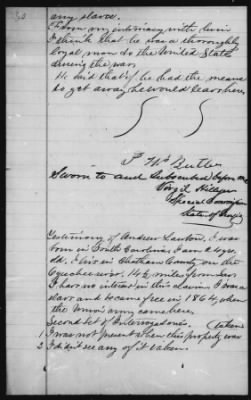 30
any slave.
From my intimacy with him
I think that he was a thoroughly
loyal man to the United States
during the war.
He said that if he had the means
to get away he would leave here.
Butler
Sworn to and Subscribed before me
Virgil Hillyer
Special Commissioner
State of Georgia
Testimony of Andrew Lawton, I was
born in South Carolina I am
old. I live in Chatham County on the
Ogeechee river. 14½ miles from Sav.
I have no interest in this claim. I was a
slave and became free in 1864, when
the Union army came here.
Second Set of Interrogatories.
1 I was not present when this property was (taken
2 I didn't see any of it taken.